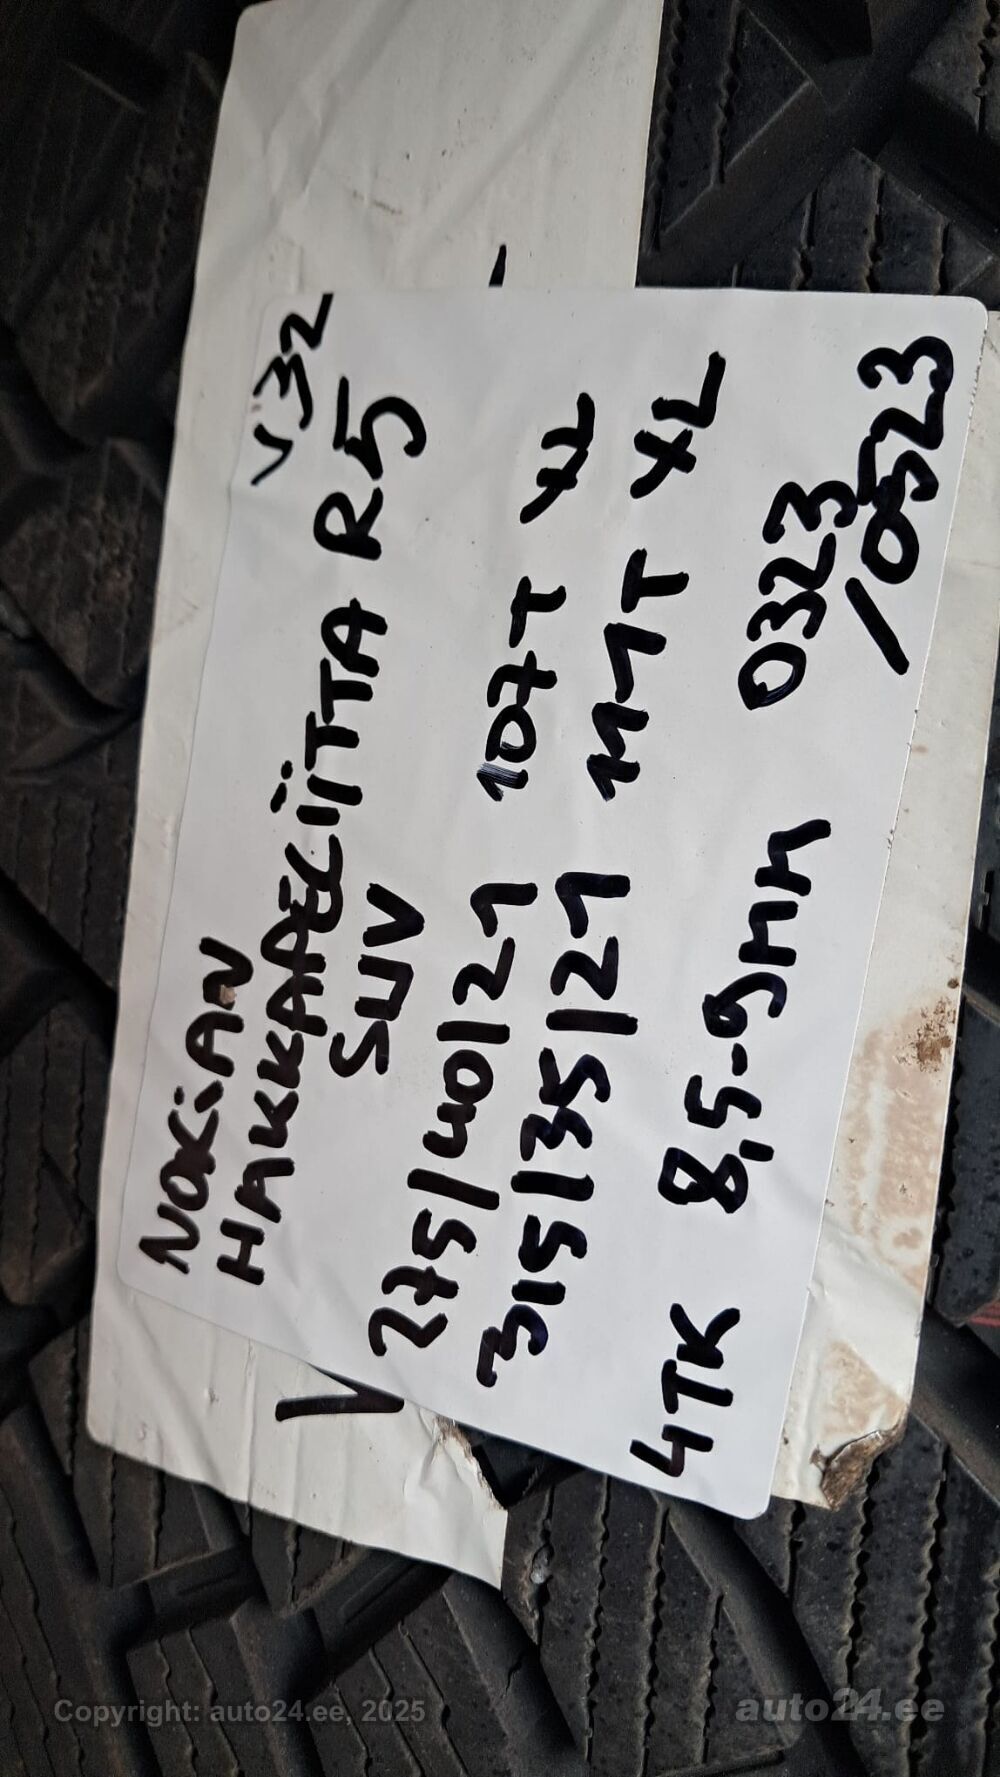 V32
NOKIAN
HAKKAPELIITTA R5
SUV
275/40/21 107T XL
315/35/21 111T XL
4TK 8,5-9MM 0323
/0523
Copyright: auto24.ee, 2025
auto24.ee